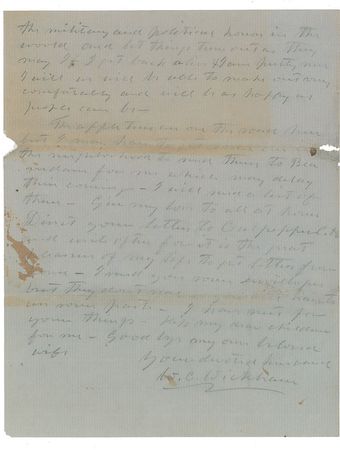 the military and political honor in the
world and let things turn out as they
may if I get back alive & I am pretty sure
I will we will be able to make out very
comfortably and will be as happy as
people can be —
The apple trees are on the road here
but I
the neighborhood to send them to Bea
for me which may delay
their coming — I will send a list of
them — Give my love to all at home
Direct your letters to Culpepper
and write often for it is the great
pleasure of my life to get letters from
I send you some envelopes
but they don't
on your part — I have sent for
your things — Kiss my dear children
for me — Good bye my own beloved
wife
Your devoted husband
W. C. Wickham